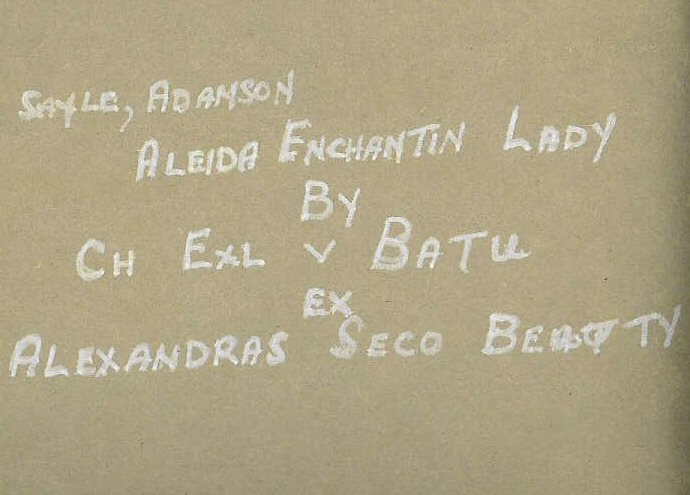 SAYLE, ADAMSON
ALEIDA ENCHANTIN LADY
BY
CH EXL V BATU
EX
ALEXANDRAS SECO